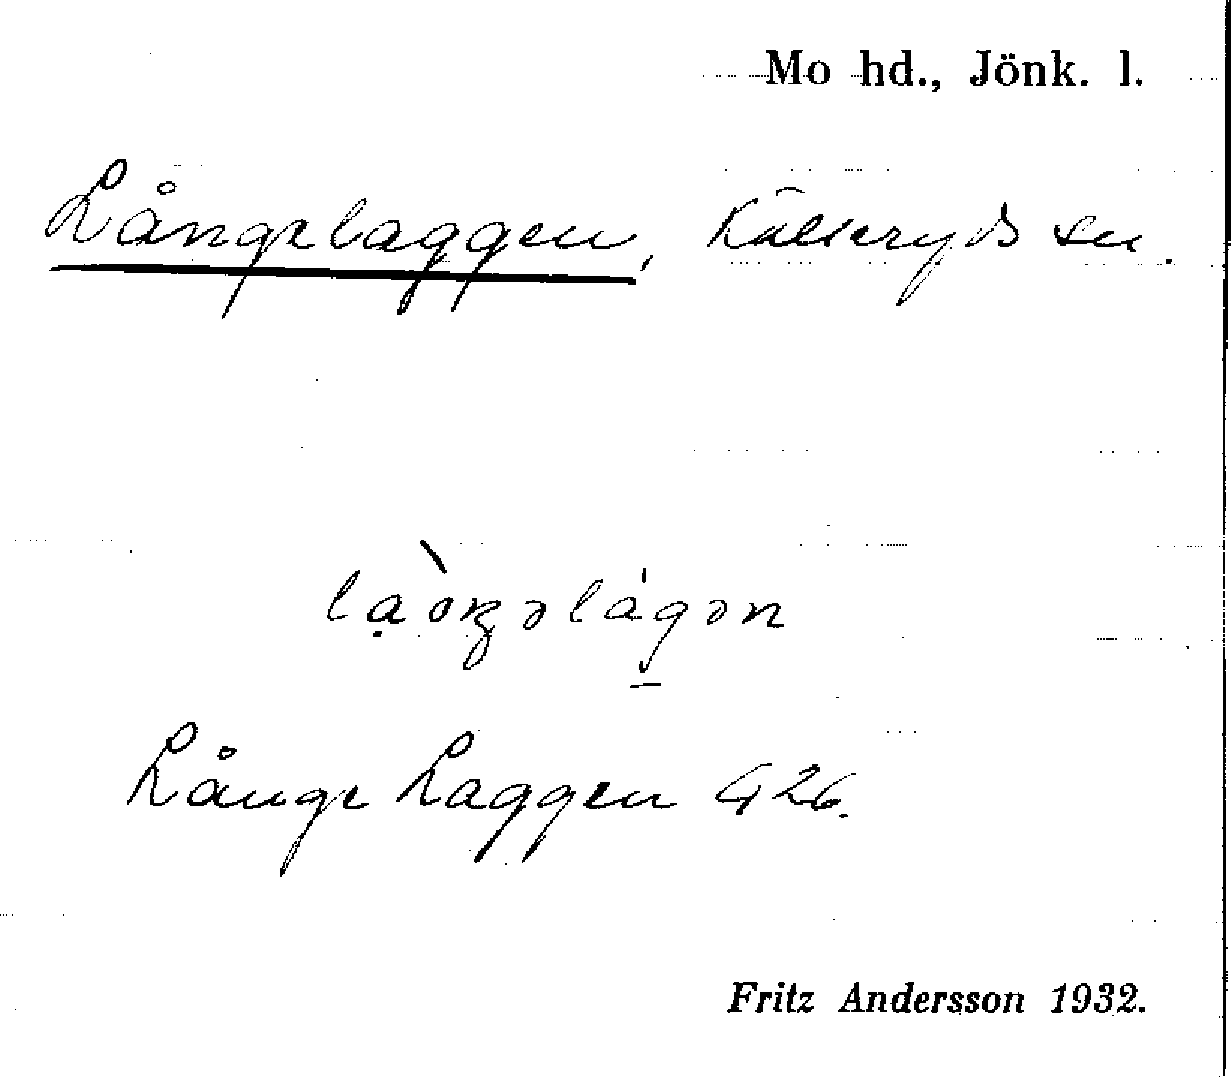 Mo hd., Jönk. l.
Långelaggen, Källeryds sn.
Långe Laggen G 26.
Fritz Andersson 1932.